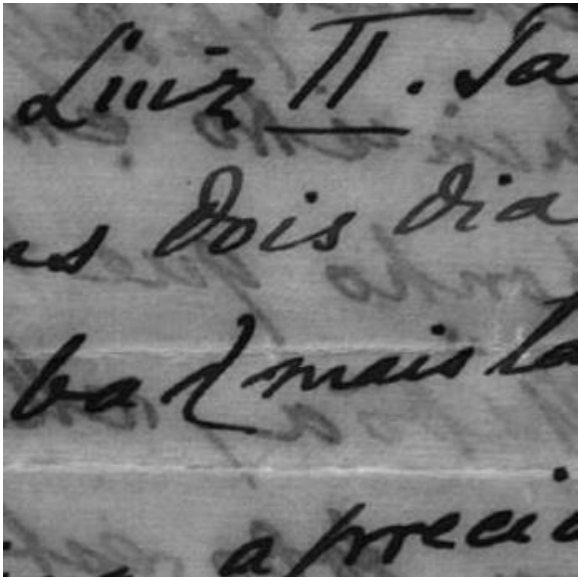 Luiz II. Ja
us dois dia
ba { mais ta
a preci